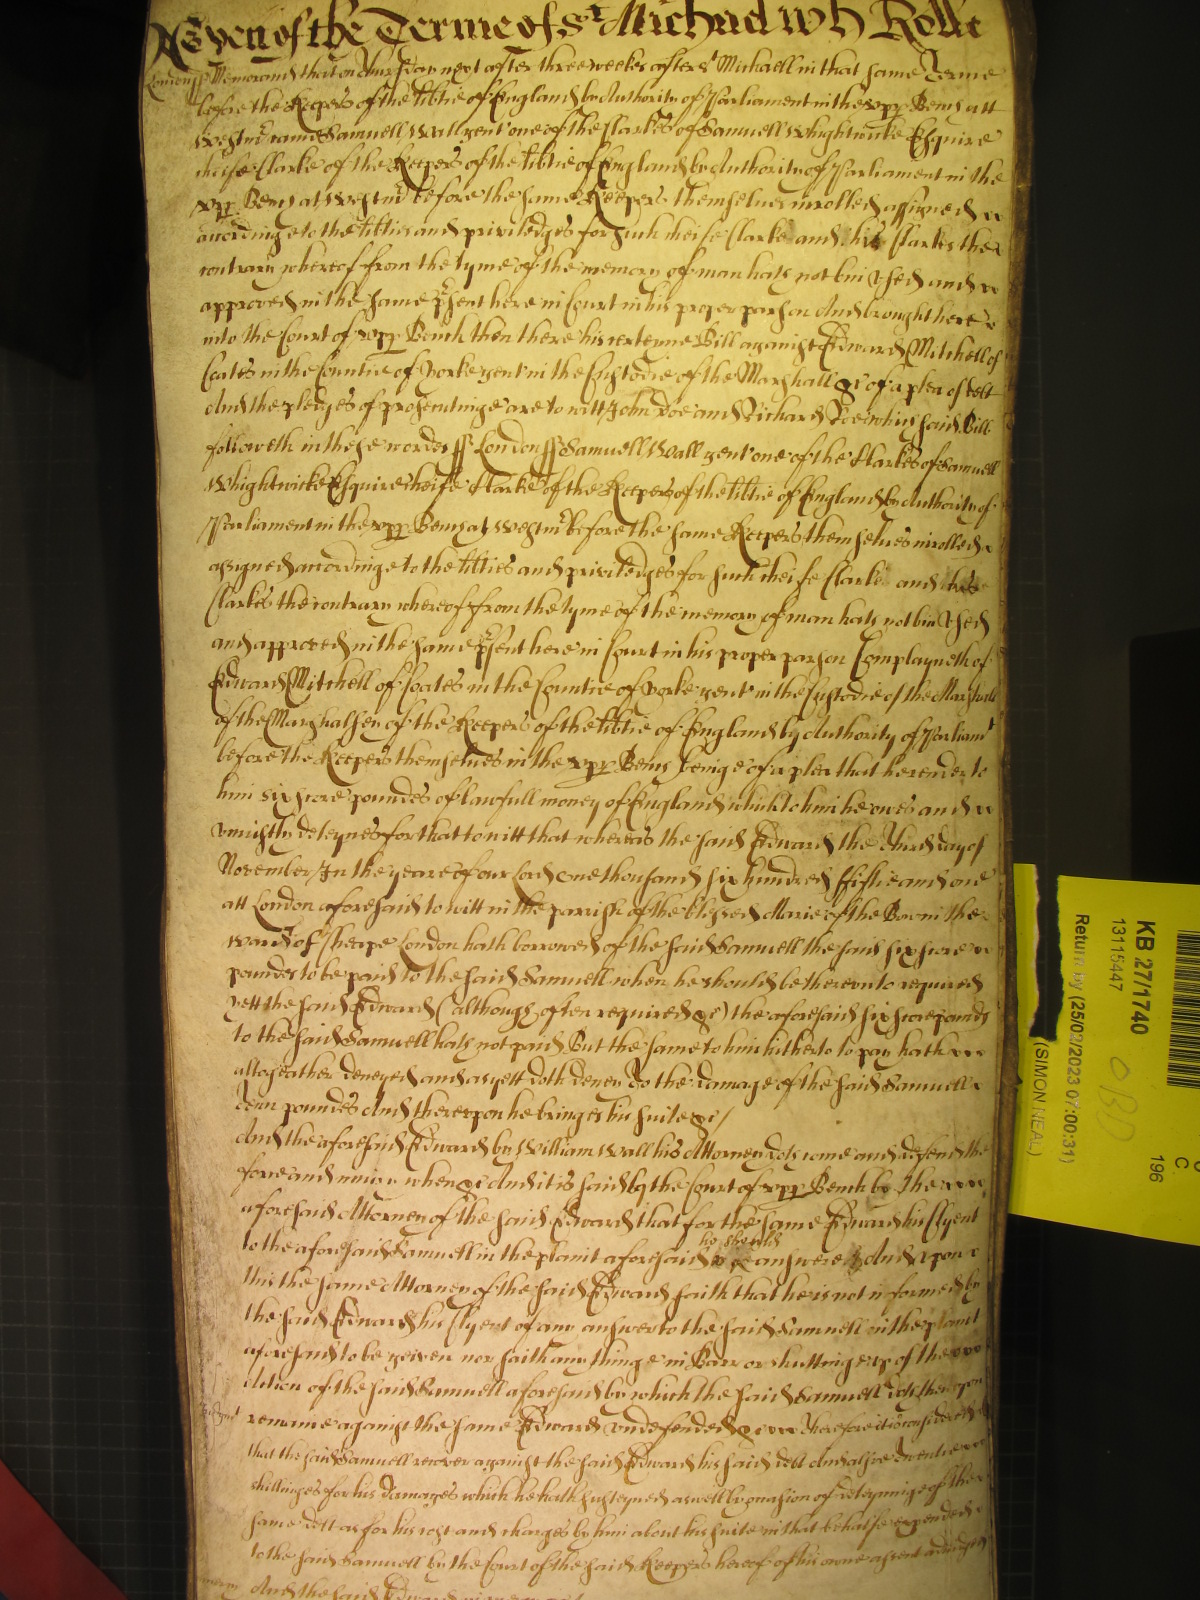 As yett of the Terme of St Michael wth Rolle
London ss Memorand that on Thursday next after three weekes after St Michaell in that same Terme
before the Keepers of the libtie of England by Authority of Parliament in the vpp Bench att
Westmr came Samuell Wall gent one of the Clarkes of Samuell Whightwicke Esquire
cheife Clarke of the Keepers of the libtie of England by Authority of Parliament in the
vpp Bench at Westmr before the same Keepers themselues inrolled assigned
accordinge to the libties and priviledges for such cheife Clarke and his Clarkes the
contrary whereof from the tyme of the memory of man hath not bin vsed and
approved in the same psent here in Court in his proper parson And brought here
into the Court of vpp Bench then there his certeyne Bill against Edward Mitchell of
Coates in the Countie of Yorke gent in the Custodie of the Marshall &c of a plea of Dett
And the pledges of prosecutinge are to witt John Doe and Richard Roe which said Bill
followeth in these wordes ss London ss Samuell Wall gent one of the Clarkes of Samuell
Whightwicke Esquire cheife Clarke of the Keepers of the libtie of England by Authority of
Parliament in the vpp Bench at Westmr before the same Keepers themselues inrolled
assigned accordinge to the libties and priviledges for such cheife Clarke and his
Clarkes the contrary whereof from the tyme of the memory of man hath not bin vsed
and approved in the same psent here in Court in his proper parson Complayneth of
Edward Mitchell of Coates in the Countie of Yorke gent in the Custodie of the Marshall
of the Marshalsey of the Keepers of the libtie of England by Authority of Parliamt
before the Keepers themselues in the vpp Bench beinge of a plea that he render to
him six score poundes of lawfull money of England which to him he owes and
vniustly deteynes for that to witt that whereas the said Edward the Third day of
November In the yeare of our Lord one thousand six hundred fiftie and one
att London aforesaid to witt in the parrish of the blessed Marie of the Bow in the
ward of Cheape London hath borrowed of the said Samuell the said six score
poundes to be paid to the said Samuell when he should be therevnto required
yett the said Edward (although often required &c) the aforesaid six score pounds
to the said Samuell hath not paid But the same to him hitherto to pay hath
altogeather denyed and as yett doth deney To the damage of the said Samuell
Tenn poundes And therevpon he bringes his suite &c/
And the aforesaid Edward by William Wall his Attorney doth come and defend the
force and iniury when &c And it is said by the Court of vpp Bench by the
aforesaid Attorney of the said Edward that for the same Edward his Clyent
he should
to the aforesaid Samuell in the plaint aforesaid answere And vpon
this the same Attorney of the said Edward saith that he is not informed by
the said Edward his Clyent of any answer to the said Samuell in the plaint
aforesaid to be geiven nor saith any thinge in Barr or shuttinge vp of the
Action of the said Samuell aforesaid by which the said Samuell doth thervpon
remaine against the same Edward vndefended &c Therefore it is considered
that the said Samuell recover against the said Edward his said dett And alsoe Twentie
shillinges for his damages which he hath susteyned aswell by occasion of deteyninge of the
same dett as for his cost and charges by him about his suite in that behalfe expended
to the said Samuell by the Court of the said Keepers hereof of his owne assent adiudged
And the said Edward in mercy &c
KB 27/1740
13115447
Return by (25/02/2023 07:00:31)
(SIMON NEAL)
C
196